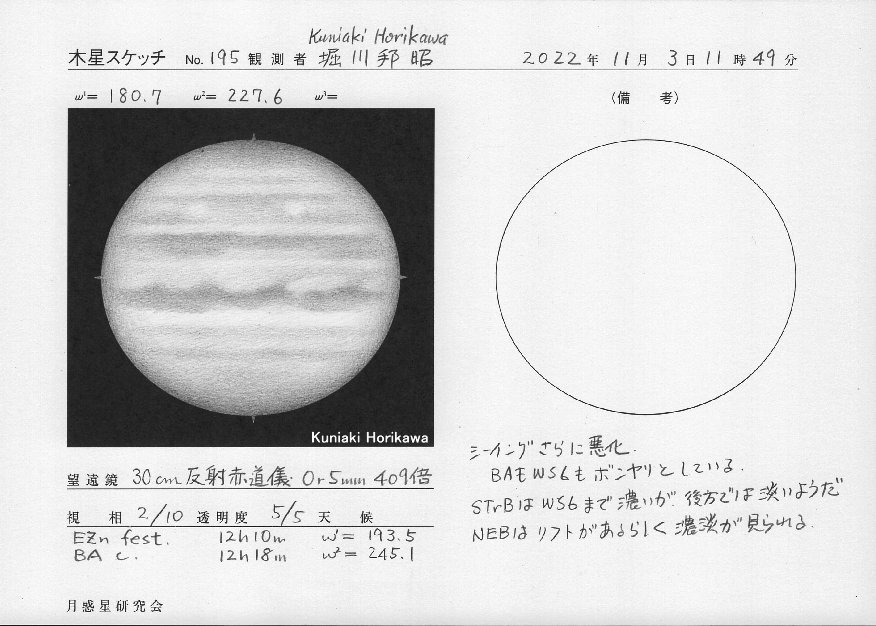 Kuniaki Horikawa
木星スケッチ No. 195 観測者 堀川邦昭 2022年 11月 3日 11時 49分
ω¹= 180.7 ω²= 227.6 ω³=
(備 考)
Kuniaki Horikawa
シーイングさらに悪化.
BAもWS6もボンヤリとしている.
STrBはWS6まで濃いが、後方では淡いようだ
NEBはリフトがあるらしく濃淡が見られる.
望遠鏡 30cm反射赤道儀 Or5mm 409倍
視 相 2/10 透明度 5/5 天 候
EZn fest. 12h10m ω¹= 193.5
BA c. 12h18m ω²= 245.1
月惑星研究会